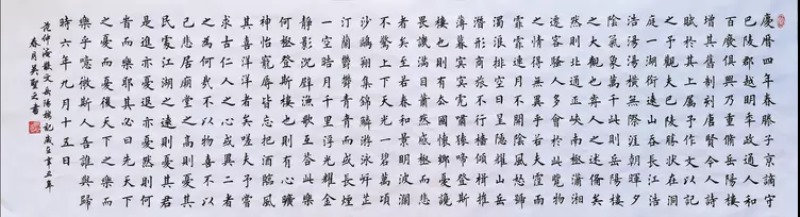 慶曆四年春滕子京謫守
巴陵郡越明年政通人和
百廢俱興乃重修岳陽樓
增其舊制刻唐賢今人詩
賦於其上屬予作文以記
之予觀夫巴陵勝狀在洞
庭一湖銜遠山吞長江浩
浩湯湯橫無際涯朝暉夕
陰氣象萬千此則岳陽樓
之大觀也前人之述備矣
然則北通巫峽南極瀟湘
遷客騷人多會於此覽物
之情得無異乎若夫霪雨
霏霏連月不開陰風怒號
濁浪排空日星隱曜山岳
潛形商旅不行檣傾楫摧
薄暮冥冥虎嘯猿啼登斯
樓也則有去國懷鄉憂讒
畏譏滿目蕭然感極而悲
者矣至若春和景明波瀾
不驚上下天光一碧萬頃
沙鷗翔集錦鱗游泳岸芷
汀蘭鬱鬱青青而或長煙
一空皓月千里浮光耀金
靜影沉璧漁歌互答此樂
何極登斯樓也則有心曠
神怡寵辱皆忘把酒臨風
其喜洋洋者矣嗟夫予嘗
求古仁人之心或異二者
之為何哉不以物喜不以
己悲居廟堂之高則憂其
民處江湖之遠則憂其君
是進亦憂退亦憂然則何
時而樂耶其必曰先天下
之憂而憂後天下之樂而
樂乎噫微斯人吾誰與歸
時六年九月十五日
范仲淹散文岳陽樓記歲在辛丑年
春月吳聖之書